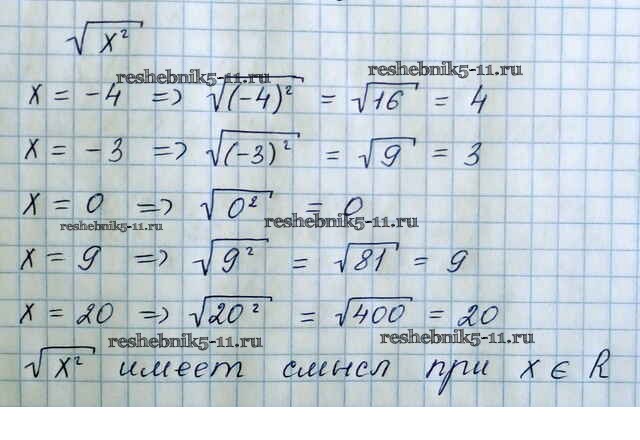 √x²
reshebnik5-11.ru reshebnik5-11.ru
x = -4 => √(-4)² = √16 = 4
x = -3 => √(-3)² = √9 = 3
x = 0 => √0² = 0
reshebnik5-11.ru reshebnik5-11.ru
x = 9 => √9² = √81 = 9
x = 20 => √20² = √400 = 20
reshebnik5-11.ru reshebnik5-11.ru
√x² имеет смысл при x ∈ R